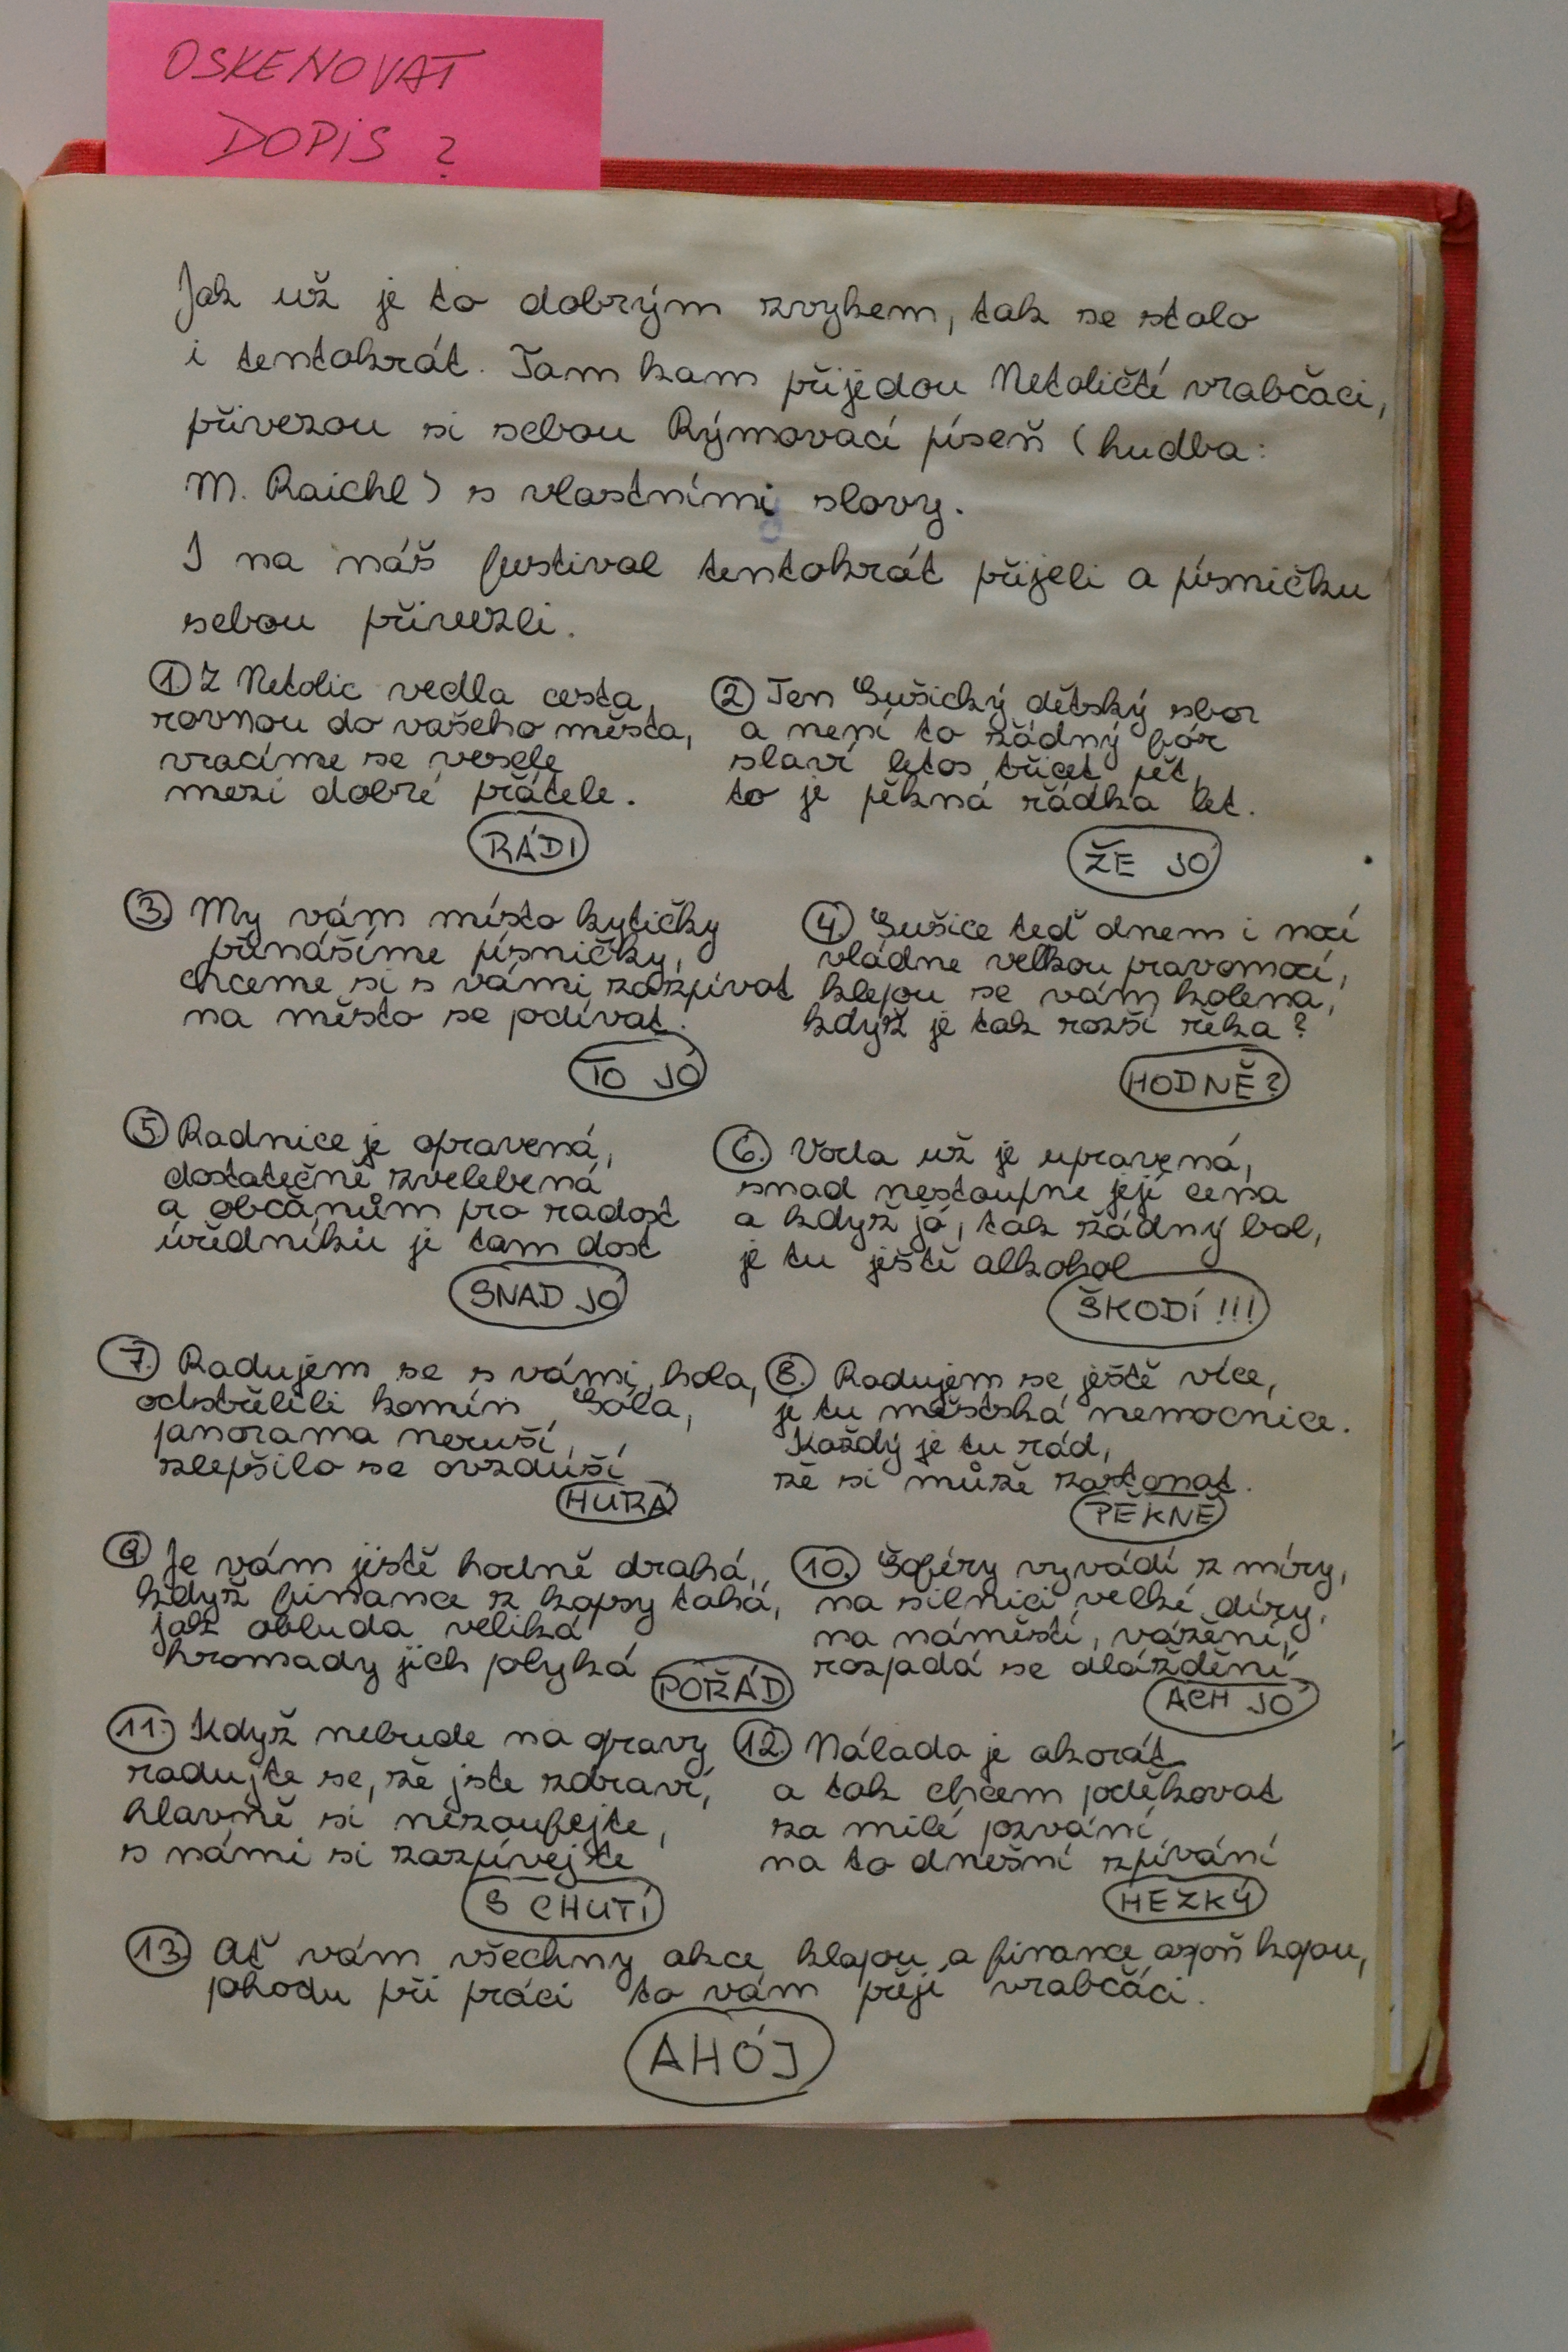 OSKENOVAT
DOPIS ?
Jak už je to dobrým zvykem, tak se stalo
i tentokrát. Tam kam přijedou Netoličtí vrabčáci,
přivezou si sebou Rýmovací píseň (hudba:
M. Raichl) s vlastními slovy.
I na náš festival tentokrát přijeli a písničku
sebou přivezli.
1) Z Netolic vedla cesta,
rovnou do vašeho města,
vracíme se vesele
mezi dobré přátele.
RÁDI
2) Ten Sušický dětský sbor
a není to žádný fór
slaví letos třicet pět,
to je pěkná řádka let.
ŽE JÓ
3.) My vám místo kytičky
přinášíme písničky,
chceme si s vámi zazpívat
na město se podívat.
TO JÓ
4.) Sušice teď dnem i nocí
vládne velkou pravomocí,
klepou se vám kolena,
když je tak rozší řéka?
HODNĚ?
5) Radnice je opravená,
dostatečně zvelebená
a občanům pro radost
úředníků je tam dost
SNAD JÓ
6.) Voda už je upravená,
snad nestoupne její cena
a když jó, tak žádný bol,
je tu ještě alkohol
ŠKODÍ !!!
7.) Radujem se s vámi, hola,
odstřelili komín Sola,
panorama neruší,
zlepšilo se ovzduší
HURÁ
8.) Radujem se ještě více,
je tu městská nemocnice.
Každý je tu rád,
že si může zastonat.
PĚKNĚ
9.) Je vám jistě hodně drahá,
když finance z kapsy tahá,
jak obluda veliká
hromady jich polyká
POŘÁD
10.) Šoféry vyvádí z míry,
na silnici velké díry,
na náměstí, vážení,
rozpadá se dláždění
ACH JÓ
11.) Když nebude na opravy
radujte se, že jste zdraví,
hlavně si nezoufejte,
s námi si zazpívejte
S CHUTÍ
12.) Nálada je akorát
a tak chcem poděkovat
za milé pozvání
na to dnešní zpívání
HEZKÝ
13.) Ať vám všechny akce klapou a finance aspoň kapou,
pohodu při práci to vám přejí vrabčáci.
AHÓJ